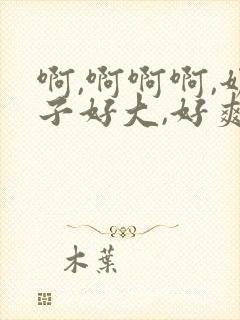 啊,啊啊啊,
子好大,好爽
木葉